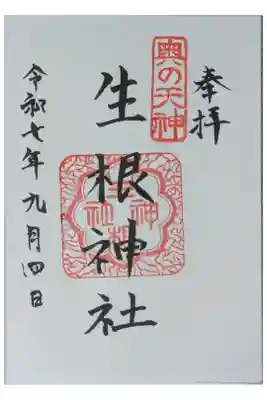 奉拝
奥の天神
生根神社
生根神社
令和七年九月四日